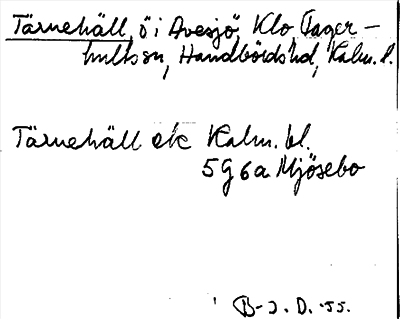 Tärnehäll, ö i Avesjö, Klo Fager-
hults sn, Handbörds hd, Kalm. l.
Tärnehäll ek Kalm. bl.
5G6a Mjösebo
B-J. D. -55.